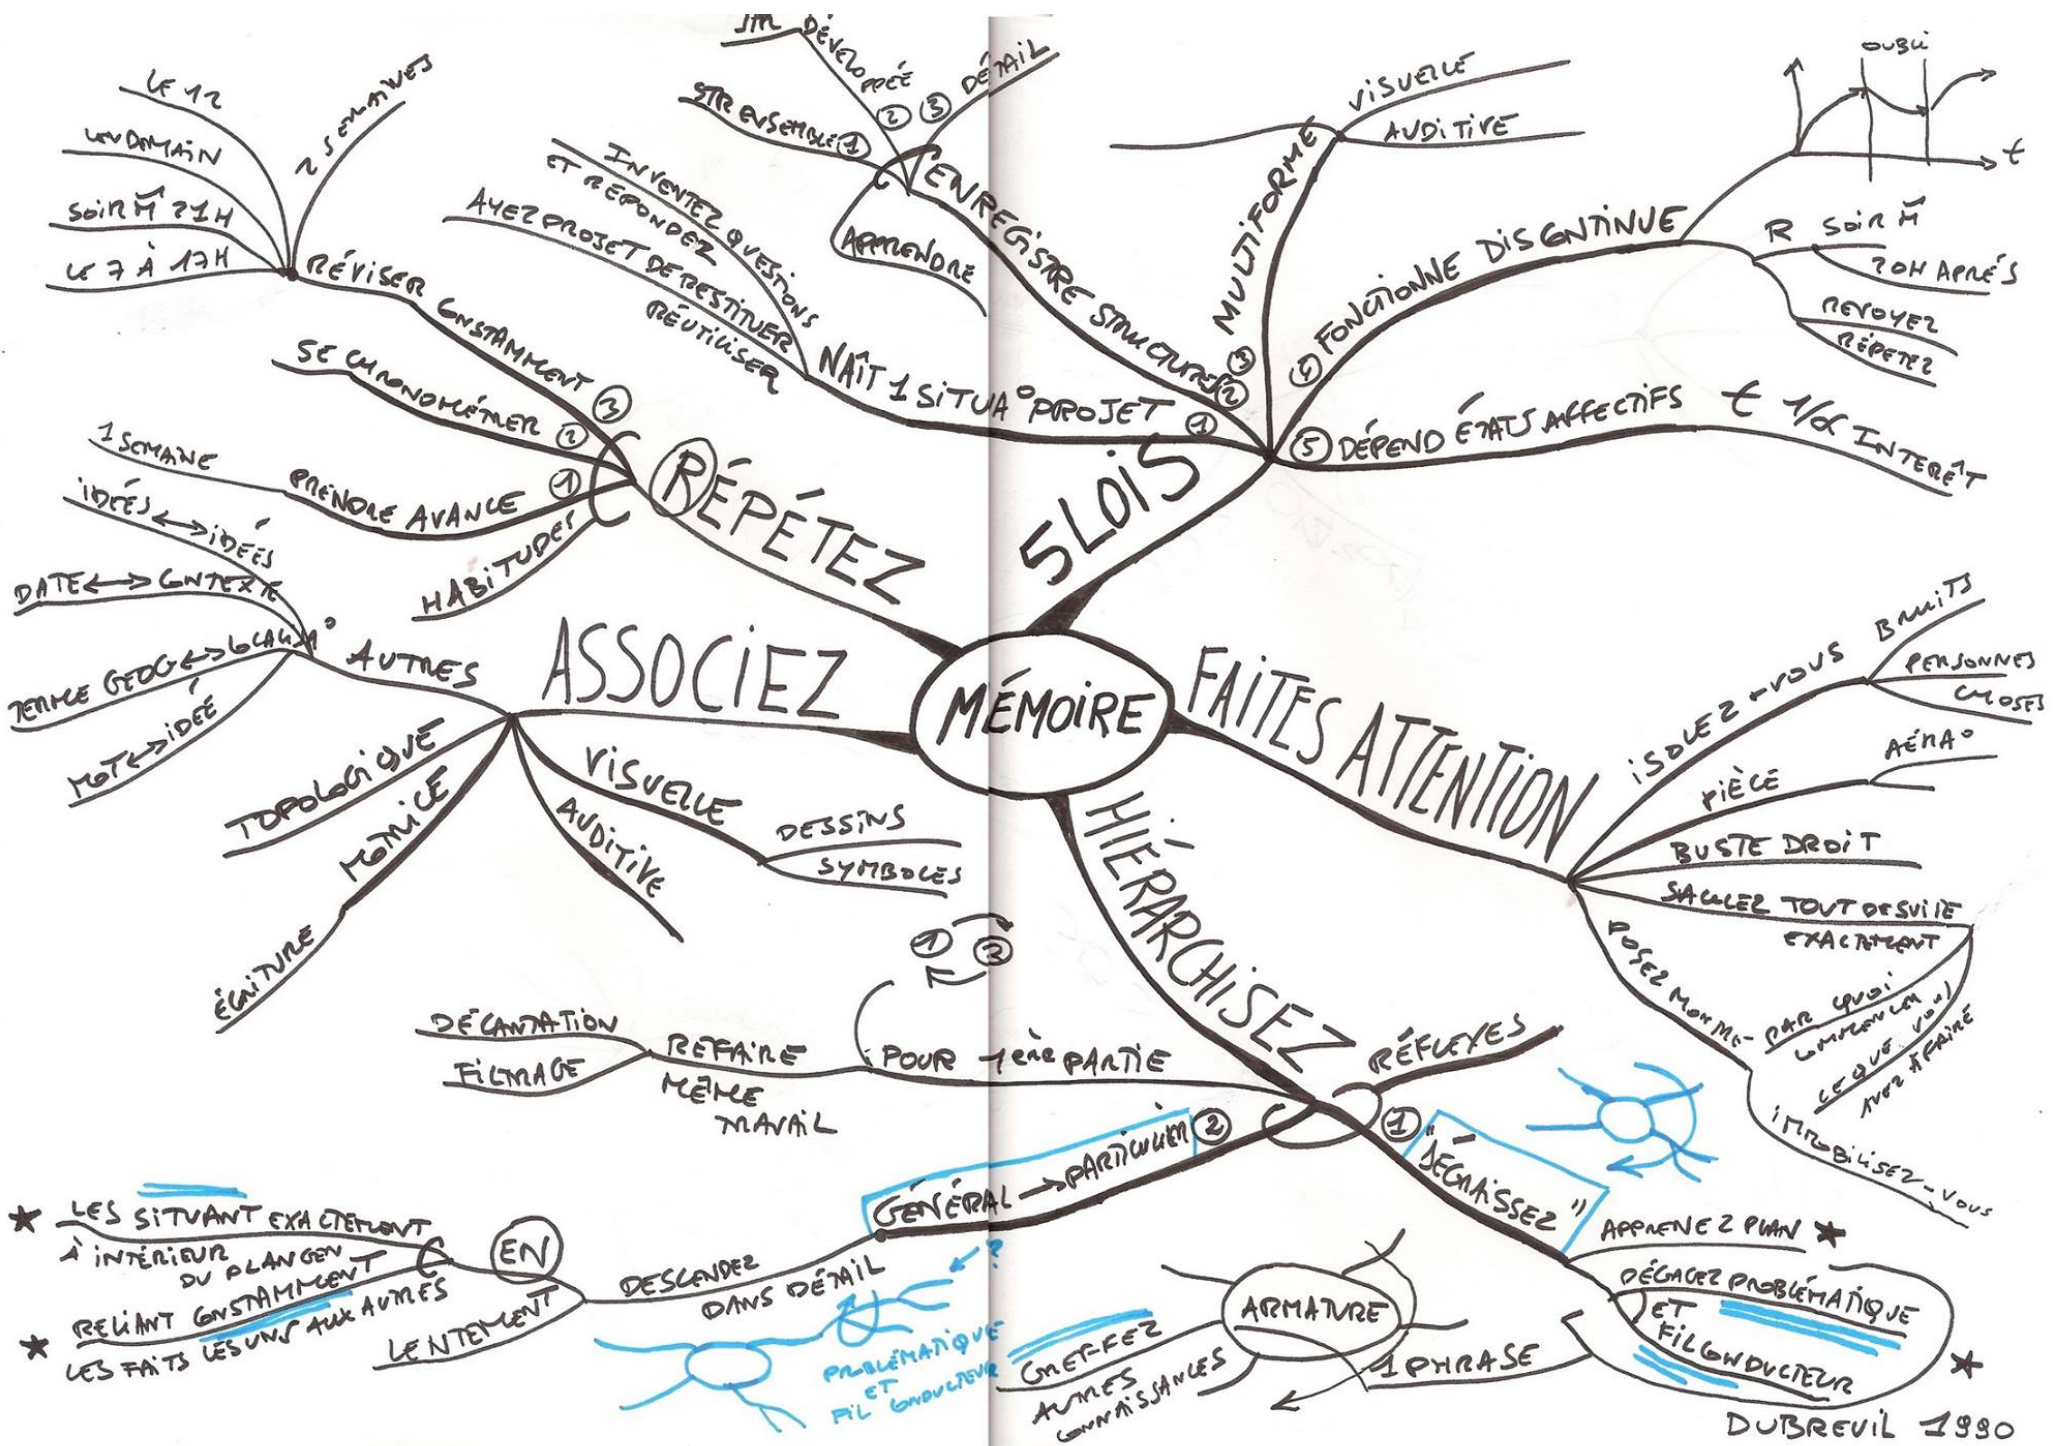 MÉMOIRE
5 LOIS
① NAÎT 1 SITUA° PROJET
INVENTEZ QUESTIONS
ET RÉPONDEZ
AYEZ PROJET DE RESTITUER
RÉUTILISER
② ENREGISTRE STRUCTURES
APPRENDRE
STR ENSEMBLE ①
STR DÉVELOPPÉE ②
③ DÉTAIL
③ MULTIFORME
VISUELLE
AUDITIVE
④ FONCTIONNE DISCONTINUE
OUBLI
t
R SOIR M̂
20H APRÉS
REVOYEZ
RÉPETEZ
⑤ DÉPEND ÉTATS AFFECTIFS
t 1/α INTERÊT
FAITES ATTENTION
ISOLEZ-VOUS
BRUITS
PERSONNES
CHOSES
PIÈCE
AÉRA°
BUSTE DROIT
SACHEZ TOUT DE SUITE
EXACTEMENT
PAR QUOI
COMMENCER
CE QUE VOUS
AVEZ À FAIRE
POSEZ MONTRE
IMMOBILISEZ-VOUS
HIÉRARCHISEZ
RÉFLEXES
① "DÉGRAISSEZ"
APPRENEZ PLAN ★
DÉGAGEZ PROBLÉMATIQUE
ET
FIL CONDUCTEUR
★
1 PHRASE
ARMATURE
GREFFEZ
AUTRES
CONNAISSANCES
② GÉNÉRAL → PARTICULIER
DESCENDEZ
DANS DÉTAIL
LENTEMENT
EN
★ LES SITUANT EXACTEMENT
À INTÉRIEUR
DU PLAN GEN
★ RELIANT CONSTAMMENT
LES FAITS LES UNS AUX AUTRES
?
PROBLÉMATIQUE
ET
FIL CONDUCTEUR
① ③
POUR 1ÈRE PARTIE
REFAIRE
MÊME
TRAVAIL
DÉCANTATION
FILTRAGE
ASSOCIEZ
VISUELLE
DESSINS
SYMBOLES
AUDITIVE
MOTRICE
ÉCRITURE
TOPOLOGIQUE
AUTRES
IDÉES ↔ IDÉES
DATE ↔ CONTEXTE
TERME GEOG ↔ LOCALISA°
MOT ↔ IDÉE
RÉPÉTEZ
HABITUDES
PRENDRE AVANCE ①
1 SEMAINE
SE CHRONOMÉTRER ②
RÉVISER CONSTAMMENT ③
LE 7 À 17H
SOIR M̂ 21H
LENDEMAIN
LE 12
2 SEMAINES
DUBREUIL 1990